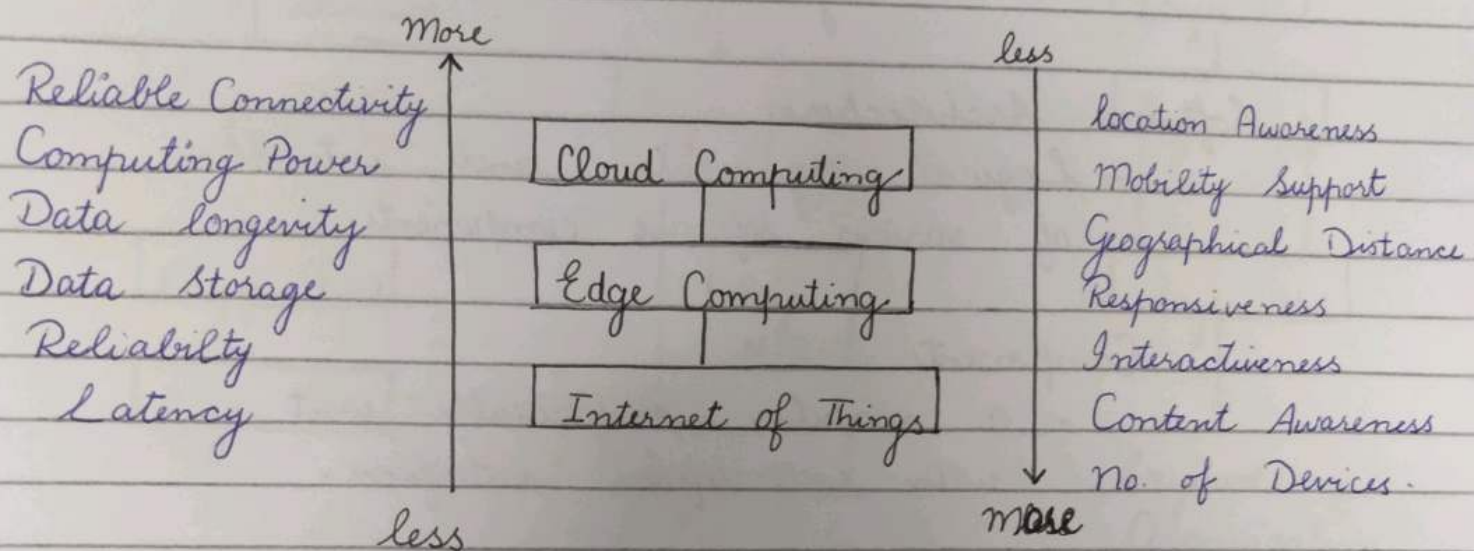 More
less
Reliable Connectivity
Computing Power
Data longevity
Data Storage
Reliabilty
Latency
Cloud Computing
Edge Computing
Internet of Things
location Awareness
Mobility Support
Geographical Distance
Responsiveness
Interactiveness
Content Awareness
No. of Devices.
less
more